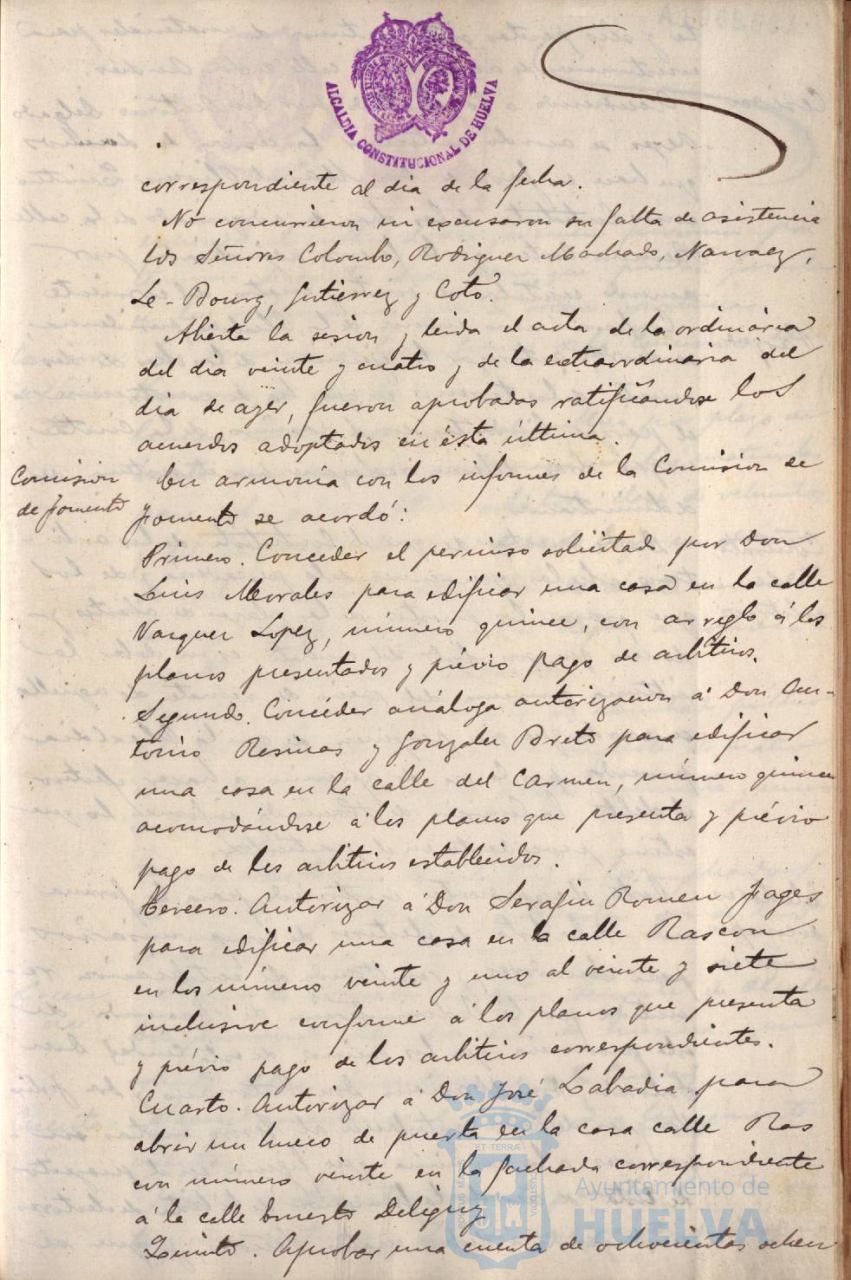 ALCALDIA CONSTITUCIONAL DE HUELVA
correspondiente al dia de la fecha.
No concurrieron ni excusaron su falta de asistencia
los Señores Colombo, Rodriguez Machado, Narvaez,
Le-Bourg, Gutierrez y Coto.
Abierta la sesion y leida el acta de la ordinaria
del dia veinte y cuatro y de la extraordinaria del
dia de ayer, fueron aprobadas ratificándose los
acuerdos adoptados en ésta última.
Comision
de fomento
En armonía con los informes de la Comision de
fomento se acordó:
Primero. Conceder el permiso solicitado por Don
Luis Morales para edificar una casa en la calle
Vazquez Lopez, número quince, con arreglo á los
planos presentados y prévio pago de arbitrios.
Segundo. Conceder análoga autorizacion á Don An-
tonio Resinas y Gonzalez Prieto para edificar
una casa en la calle del Carmen, número quince
acomodándose á los planos que presenta y prévio
pago de los arbitrios establecidos.
Tercero. Autorizar á Don Serafin Romeu Fages
para edificar una casa en la calle Rascon
en los números veinte y uno al veinte y siete
inclusive conforme á los planos que presenta
y prévio pago de los arbitrios correspondientes.
Cuarto. Autorizar á Don José Labadia para
abrir un hueco de puerta en la casa calle Ras
con número veinte en la fachada correspondiente
á la calle Ernesto Deligny
Quinto. Aprobar una cuenta de ochocientas ochen
Ayuntamiento de
HUELVA